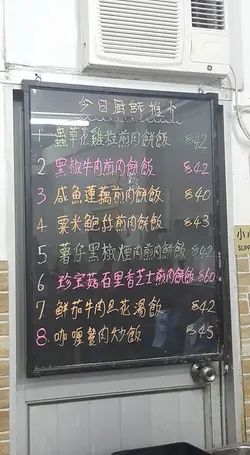 今日厨師推介
1 蟲草花雞粒煎肉餅飯 $42
2 黑椒牛肉煎肉餅飯 $42
3 咸魚蓮藕煎肉餅飯 $40
4 粟米鮑絲煎肉餅飯 $43
5 薯仔黑椒煙肉煎肉餅飯 $42
6 珍宝菇石里香芝士煎肉餅飯 $60
7 鮮茄牛肉旦花湯飯 $42
8. 咖喱蟹肉炒飯 $45
小